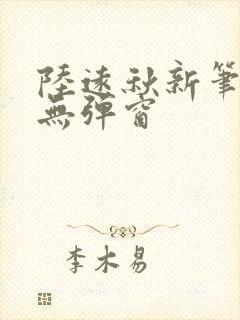 陸遠秋新筆
無彈窗
李木易